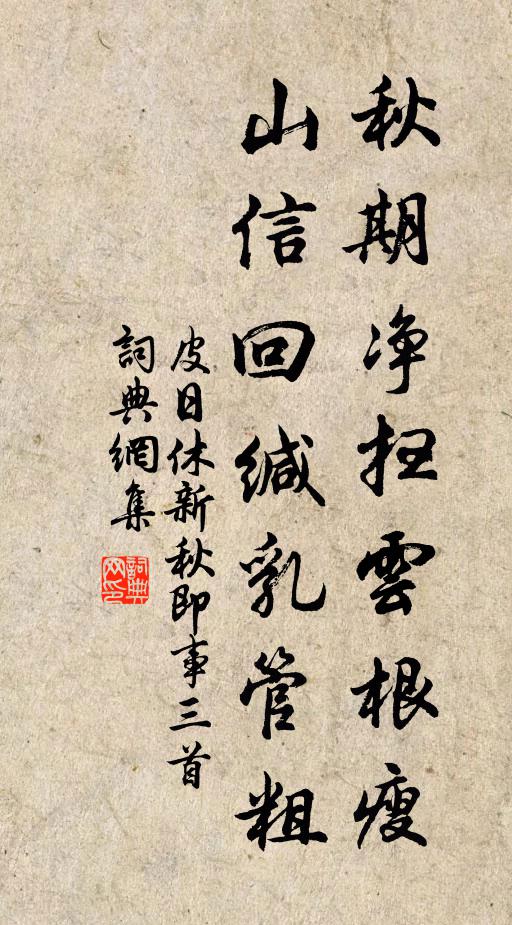 秋期净扫雲根瘦
山信回缄乳管粗
皮日休新秋即事三首
詞典網集
詞典网印